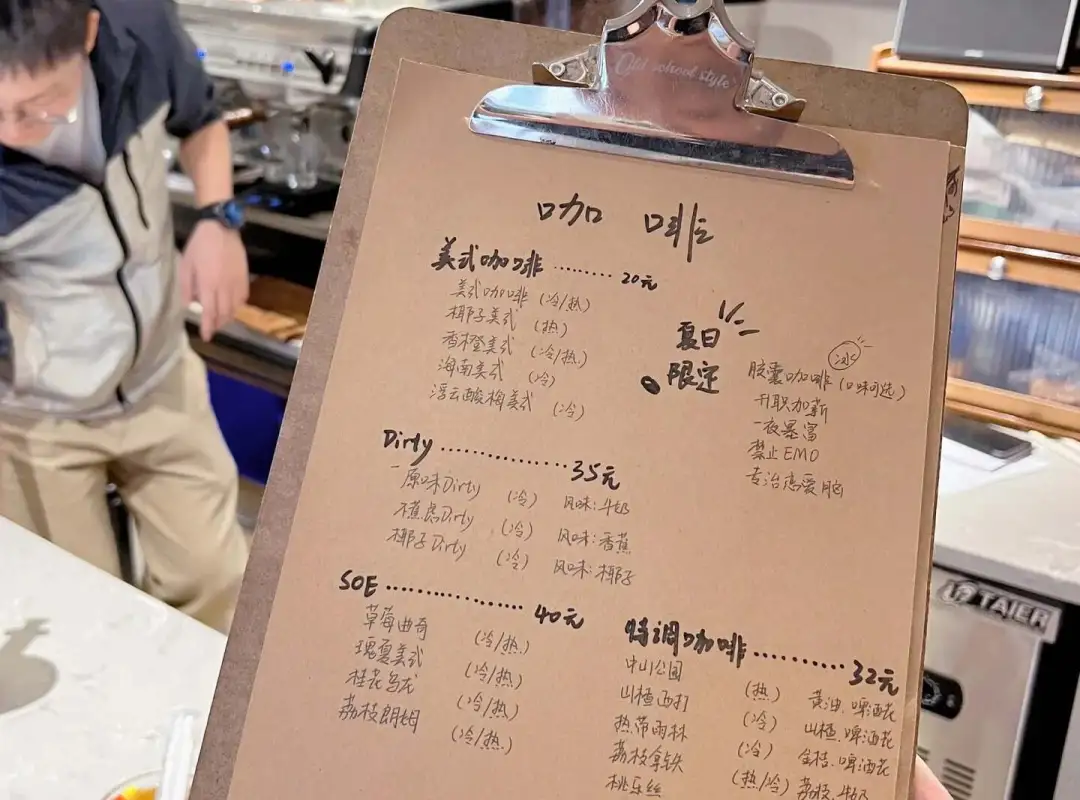 Old school style
咖 啡
美式咖啡 ........ 20元
美式咖啡 (冷/热)
椰子美式 (热)
香橙美式 (冷/热)
海南美式 (冷)
浮云酸梅美式 (冷)
夏日
限定
冰
胶囊咖啡 (口味可选)
升职加薪
一夜暴富
禁止EMO
专治恋爱脑
Dirty ............... 35元
原味Dirty (冷) 风味:牛奶
蕉虑Dirty (冷) 风味:香蕉
椰子Dirty (冷) 风味:椰子
SOE ................ 40元
草莓曲奇 (冷/热)
瑰夏美式 (冷/热)
桂花乌龙 (冷/热)
荔枝朗姆 (冷/热)
特调咖啡 .......... 32元
中山公园 (热) 黄油、啤酒花
山楂西打 (冷) 山楂、啤酒花
热带雨林 (冷) 金桔、啤酒花
荔枝拿铁 (热/冷) 荔枝、牛奶
桃乐丝
TAIER